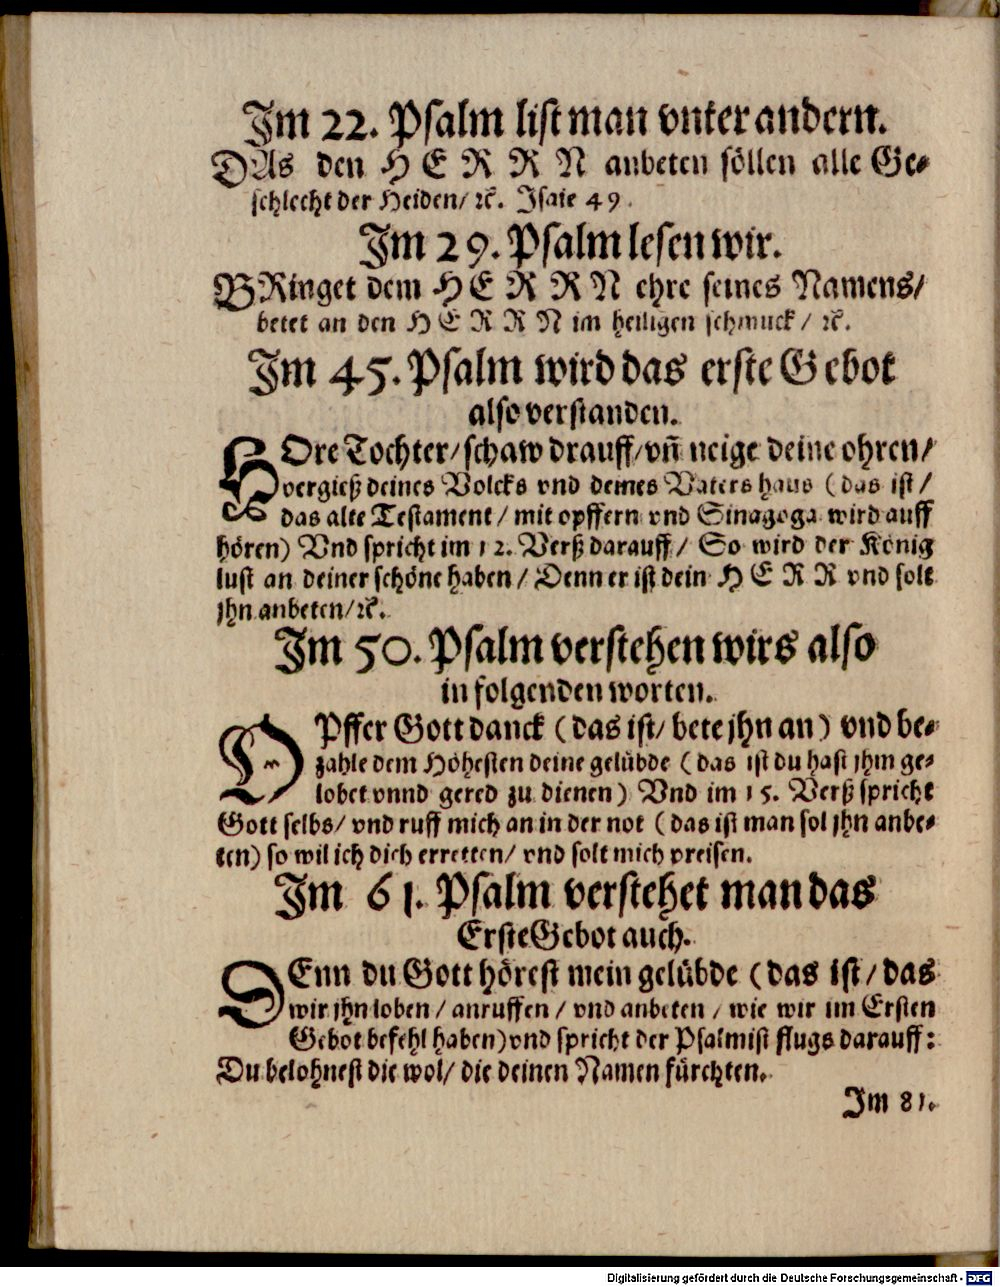 Im 22. Psalm list man vnter andern.
DAs den HERRN anbeten söllen alle Ge-
schlecht der Heiden/ ꝛc. Isaie 49.
Im 29. Psalm lesen wir.
BRinget dem HERRN ehre seines Namens/
betet an den HERRN im heiligen schmuck/ ꝛc.
Im 45. Psalm wird das erste Gebot
also verstanden.
HOre Tochter/ schaw drauff/ vñ neige deine ohren/
vergieß deines Volcks vnd deines Vaters haus (das ist/
das alte Testament/ mit opffern vnd Sinagoga wird auff
hören) Vnd spricht im 12. Verß darauff/ So wird der König
lust an deiner schöne haben/ Denn er ist dein HERR vnd solt
jhn anbeten/ ꝛc.
Im 50. Psalm verstehen wirs also
in folgenden worten.
OPffer Gott danck (das ist/ bete jhn an) vnd be-
zahle dem Höhesten deine gelübde (das ist du hast jhm ge-
lobet vnnd gered zu dienen) Vnd im 15. Verß spricht
Gott selbs/ vnd ruff mich an in der not (das ist man sol jhn anbe-
ten) so wil ich dich erretten/ vnd solt mich preisen.
Im 61. Psalm verstehet man das
Erste Gebot auch.
DEnn du Gott hörest mein gelübde (das ist/ das
wir jhn loben/ anruffen/ vnd anbeten/ wie wir im Ersten
Gebot befehl haben) vnd spricht der Psalmist flugs darauff:
Du belohnest die wol/ die deinen Namen fürchten.
Im 81.
Digitalisierung gefördert durch die Deutsche Forschungsgemeinschaft - DFG